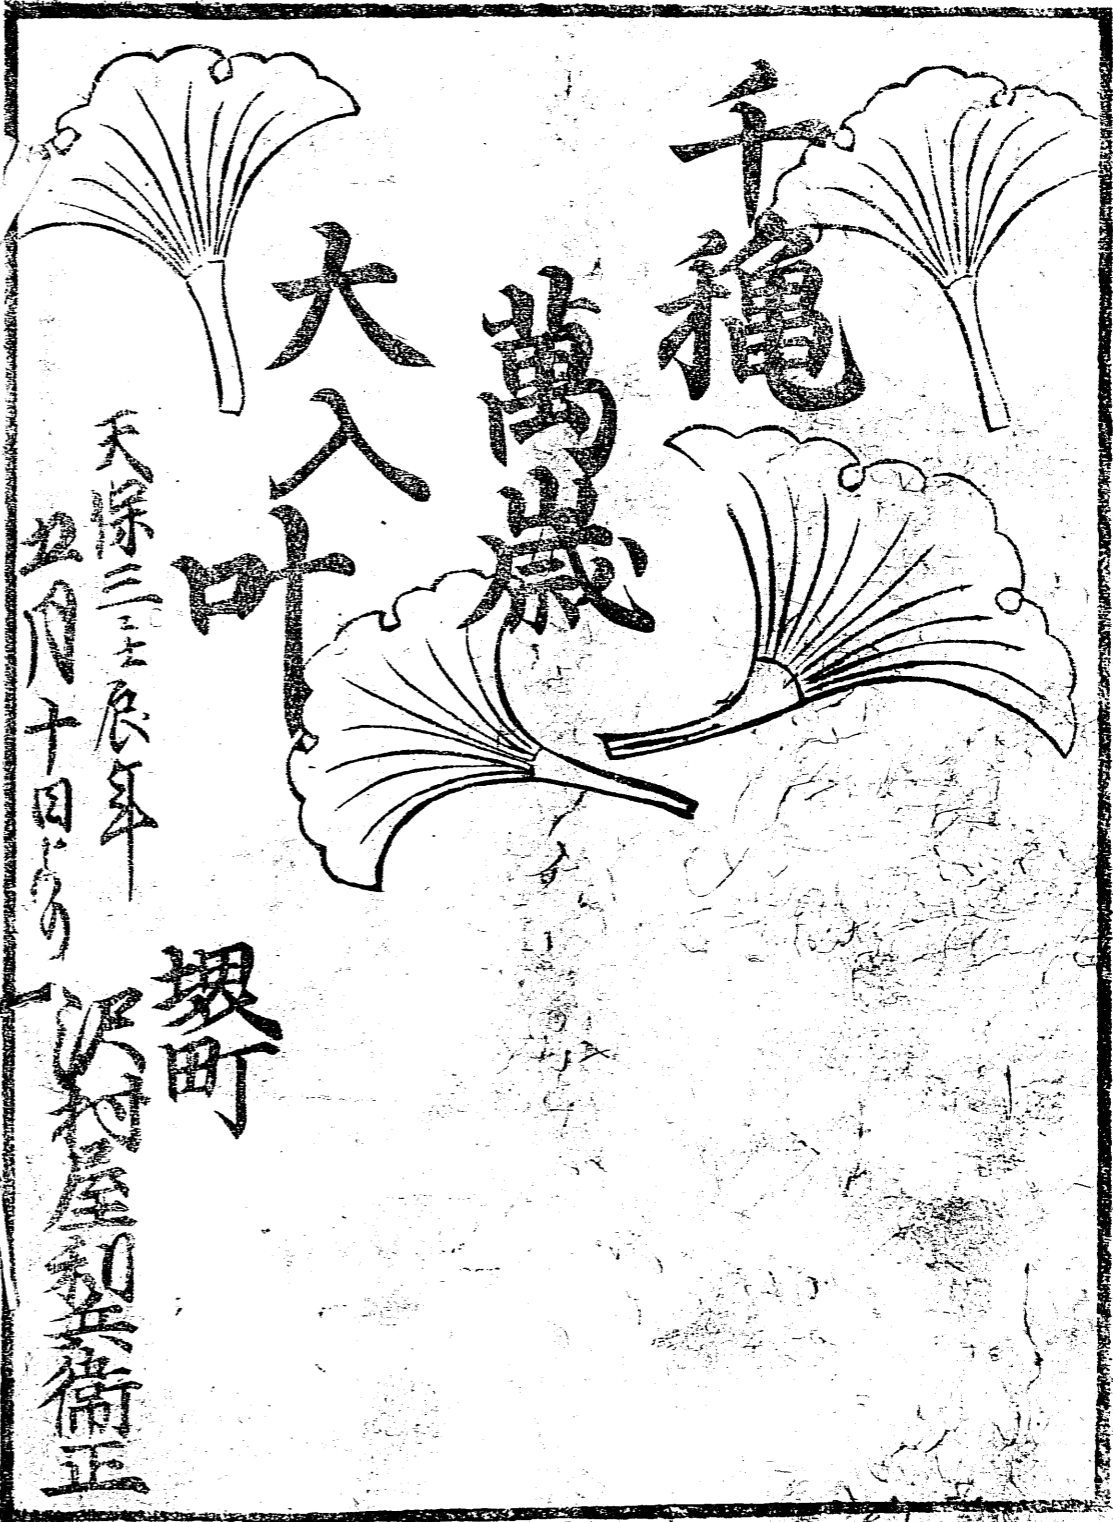 千穐
萬歳
大入
叶
天保三壬辰年
五月十日より
堺町
沢村屋利兵衛正